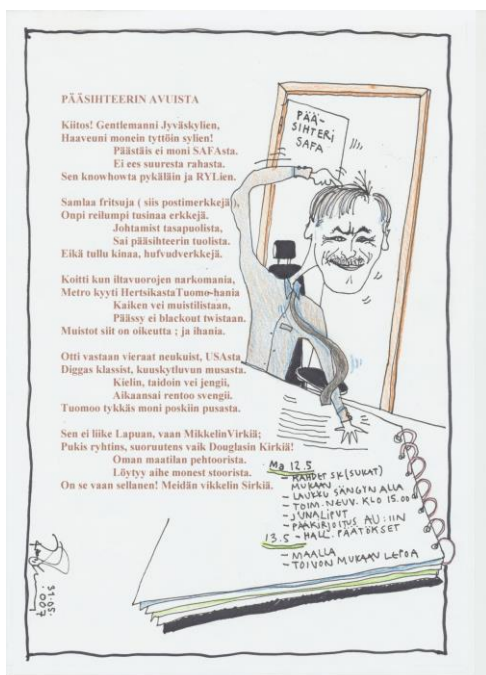 PÄÄSIHTEERIN AVUISTA
Kiitos! Gentlemanni Jyväskylien,
Haaveuni monein tyttöin sylien!
Päästäis ei moni SAFAsta.
Ei ees suuresta rahasta.
Sen knowhowta pykäläin ja RYLien.
Samlaa fritsuja ( siis postimerkkejä ),
Onpi reilumpi tusinaa erkkejä.
Johtamist tasapuolista,
Sai pääsihteerin tuolista.
Eikä tullu kinaa, hufvudverkkejä.
Koitti kun iltavuorojen narkomania,
Metro kyyti HertsikastaTuomo-hania
Kaiken vei muistilistaan,
Päässy ei blackout twistaan.
Muistot siit on oikeutta ; ja ihania.
Otti vastaan vieraat neukuist, USAsta
Diggas klassist, kuuskytluvun musasta.
Kielin, taidoin vei jengii,
Aikaansai rentoo svengii.
Tuomoo tykkäs moni poskiin pusasta.
Sen ei liike Lapuan, vaan MikkelinVirkiä;
Pukis ryhtins, suoruutens vaik Douglasin Kirkiä!
Oman maatilan pehtoorista.
Löytyy aihe monest stoorista.
On se vaan sellanen! Meidän vikkelin Sirkiä.
PÄÄ-
SIHTERI
SAFA
Ma 12.5
- KAHDET SK (SUKAT)
MUKAAN
- LAUKKU SÄNGYN ALLA
- TOIM. NEUV. KLO 15.00
- JUNALIPUT
- PÄÄKIRJOITUS AU:IIN
13.5 - HALL. PÄÄTÖKSET
- MAALLA
- TOIVON MUKAAN LEPOA